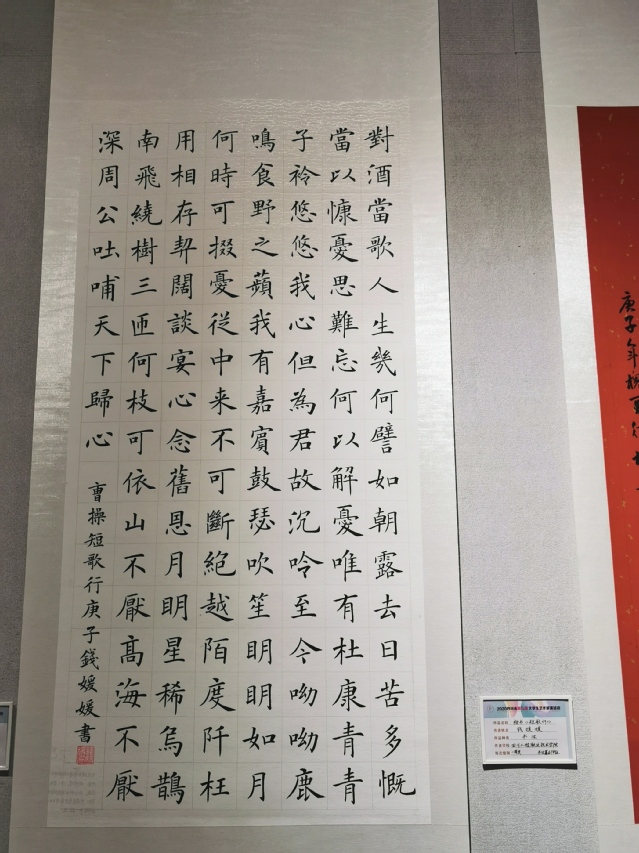 對酒當歌人生幾何譬如朝露去日苦多慨
當以慷憂思難忘何以解憂唯有杜康青青
子衿悠悠我心但為君故沉吟至今呦呦鹿
鳴食野之蘋我有嘉賓鼓瑟吹笙明明如月
何時可掇憂從中来不可斷絕越陌度阡枉
用相存契闊談宴心念舊恩月明星稀烏鵲
南飛繞樹三匝何枝可依山不厭高海不厭
深周公吐哺天下歸心
曹操短歌行庚子錢媛媛書
庚子年